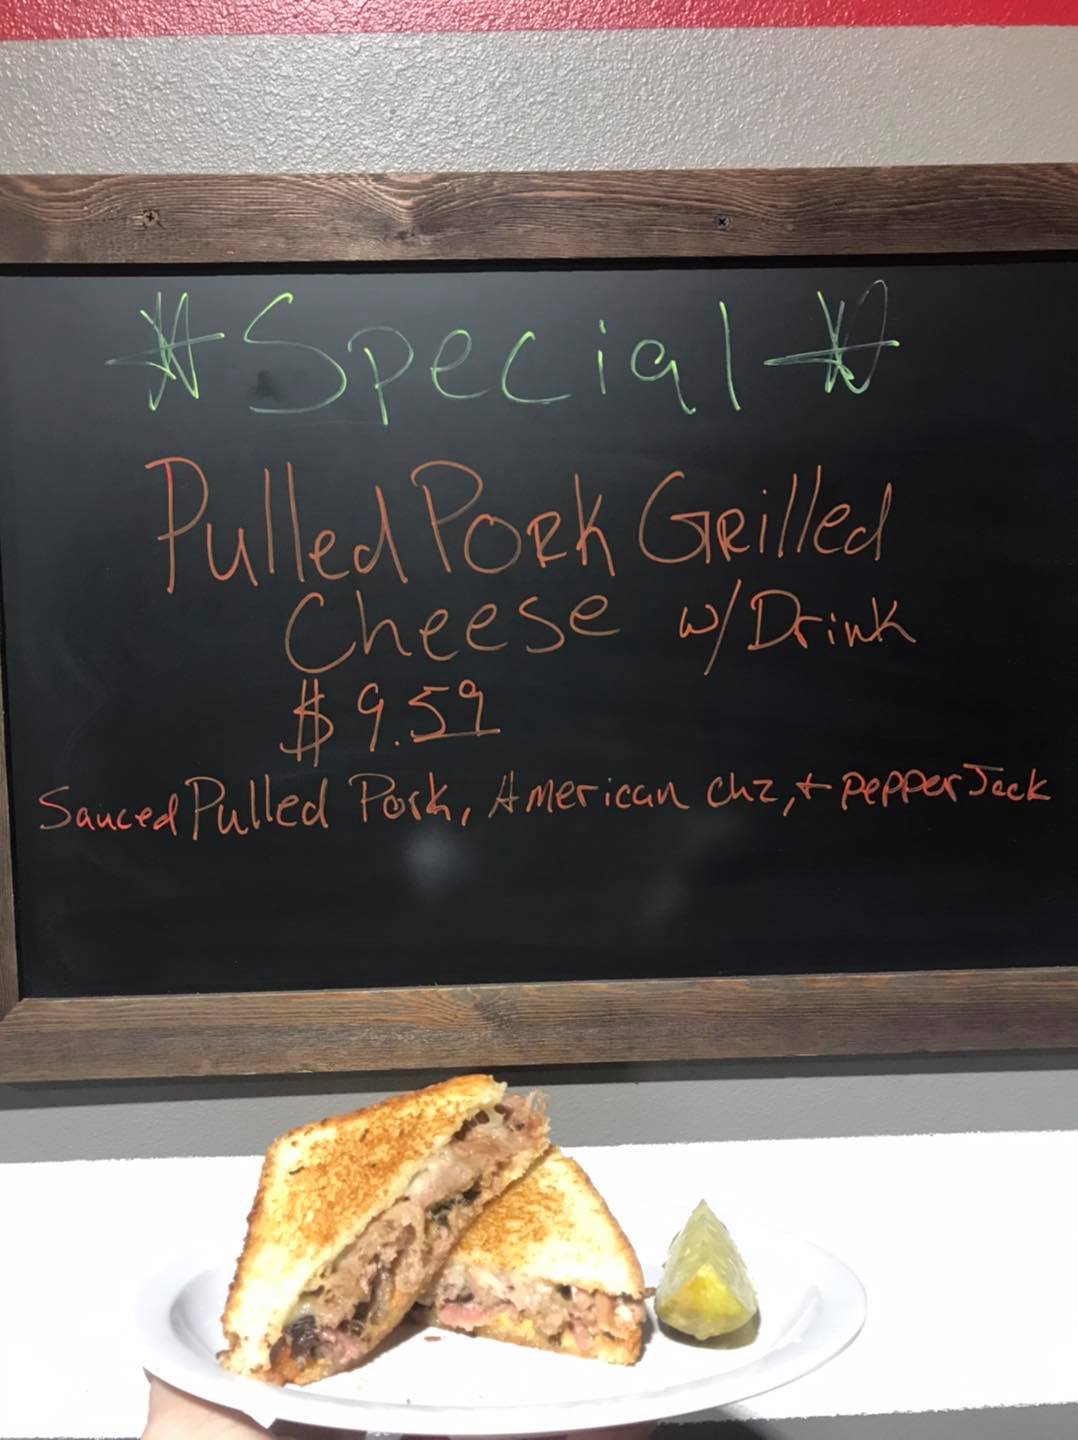 *Special*
Pulled Pork Grilled
Cheese w/ Drink
$9.59
Sauced Pulled Pork, American chz, + pepper Jack